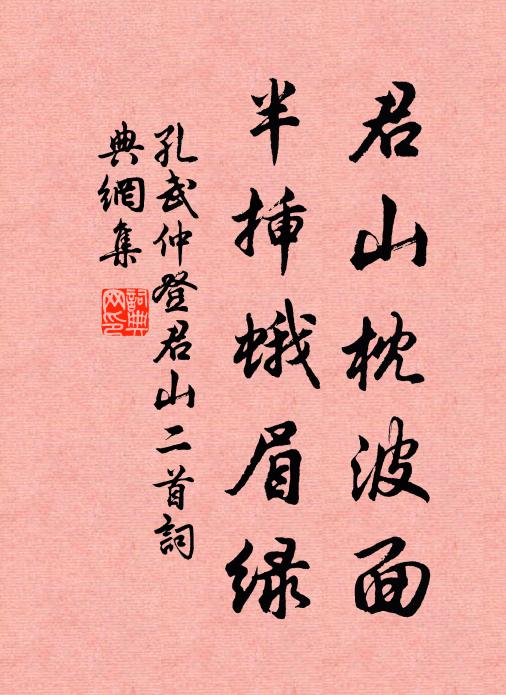 君山枕波面
半揷蛾眉綠
孔武仲登君山二首詞
典網集
詞典
网印